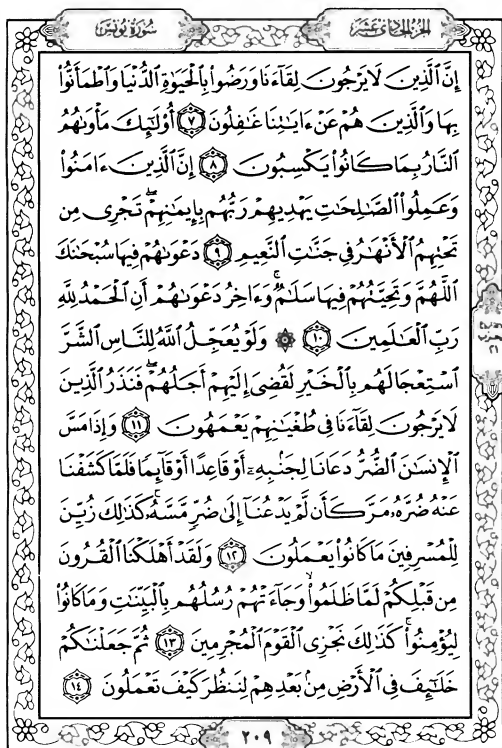 سُورَةُ يُونُسَ
الجُزْءُ الحَادِي عَشَرَ
إِنَّ ٱلَّذِينَ لَا يَرْجُونَ لِقَآءَنَا وَرَضُوا۟ بِٱلْحَيَوٰةِ ٱلدُّنْيَا وَٱطْمَأَنُّوا۟
بِهَا وَٱلَّذِينَ هُمْ عَنْ ءَايَـٰتِنَا غَـٰفِلُونَ ٧ أُو۟لَـٰٓئِكَ مَأْوَىٰهُمُ
ٱلنَّارُ بِمَا كَانُوا۟ يَكْسِبُونَ ٨ إِنَّ ٱلَّذِينَ ءَامَنُوا۟
وَعَمِلُوا۟ ٱلصَّـٰلِحَـٰتِ يَهْدِيهِمْ رَبُّهُم بِإِيمَـٰنِهِمْ ۖ تَجْرِى مِن
تَحْتِهِمُ ٱلْأَنْهَـٰرُ فِى جَنَّـٰتِ ٱلنَّعِيمِ ٩ دَعْوَىٰهُمْ فِيهَا سُبْحَـٰنَكَ
ٱللَّهُمَّ وَتَحِيَّتُهُمْ فِيهَا سَلَـٰمٌ ۚ وَءَاخِرُ دَعْوَىٰهُمْ أَنِ ٱلْحَمْدُ لِلَّهِ
رَبِّ ٱلْعَـٰلَمِينَ ١٠ ۞ وَلَوْ يُعَجِّلُ ٱللَّهُ لِلنَّاسِ ٱلشَّرَّ
ٱسْتِعْجَالَهُم بِٱلْخَيْرِ لَقُضِىَ إِلَيْهِمْ أَجَلُهُمْ ۖ فَنَذَرُ ٱلَّذِينَ
لَا يَرْجُونَ لِقَآءَنَا فِى طُغْيَـٰنِهِمْ يَعْمَهُونَ ١١ وَإِذَا مَسَّ
ٱلْإِنسَـٰنَ ٱلضُّرُّ دَعَانَا لِجَنۢبِهِۦٓ أَوْ قَاعِدًا أَوْ قَآئِمًا فَلَمَّا كَشَفْنَا
عَنْهُ ضُرَّهُۥ مَرَّ كَأَن لَّمْ يَدْعُنَآ إِلَىٰ ضُرٍّ مَّسَّهُۥ ۚ كَذَٰلِكَ زُيِّنَ
لِلْمُسْرِفِينَ مَا كَانُوا۟ يَعْمَلُونَ ١٢ وَلَقَدْ أَهْلَكْنَا ٱلْقُرُونَ
مِن قَبْلِكُمْ لَمَّا ظَلَمُوا۟ ۙ وَجَآءَتْهُمْ رُسُلُهُم بِٱلْبَيِّنَـٰتِ وَمَا كَانُوا۟
لِيُؤْمِنُوا۟ ۚ كَذَٰلِكَ نَجْزِى ٱلْقَوْمَ ٱلْمُجْرِمِينَ ١٣ ثُمَّ جَعَلْنَـٰكُمْ
خَلَـٰٓئِفَ فِى ٱلْأَرْضِ مِنۢ بَعْدِهِمْ لِنَنظُرَ كَيْفَ تَعْمَلُونَ ١٤
٢٠٩